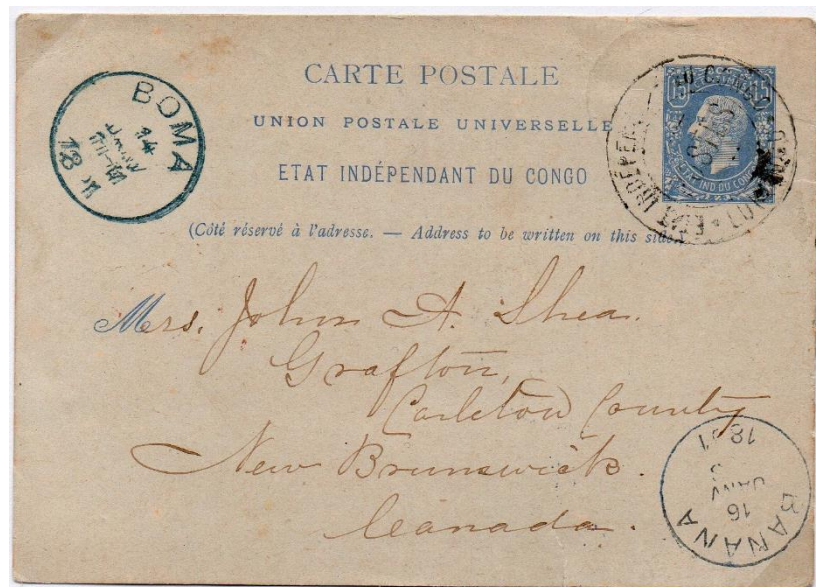 CARTE POSTALE
UNION POSTALE UNIVERSELLE
ETAT INDÉPENDANT DU CONGO
(Côté réservé à l'adresse. — Address to be written on this side.)
15 15
ETAT IND DU CONGO
BOMA
14
JANV
18
Mrs. John A. Shea.
Grafton,
Carleton County
New Brunswick.
Canada.
BANANA
16
JANV
18 91